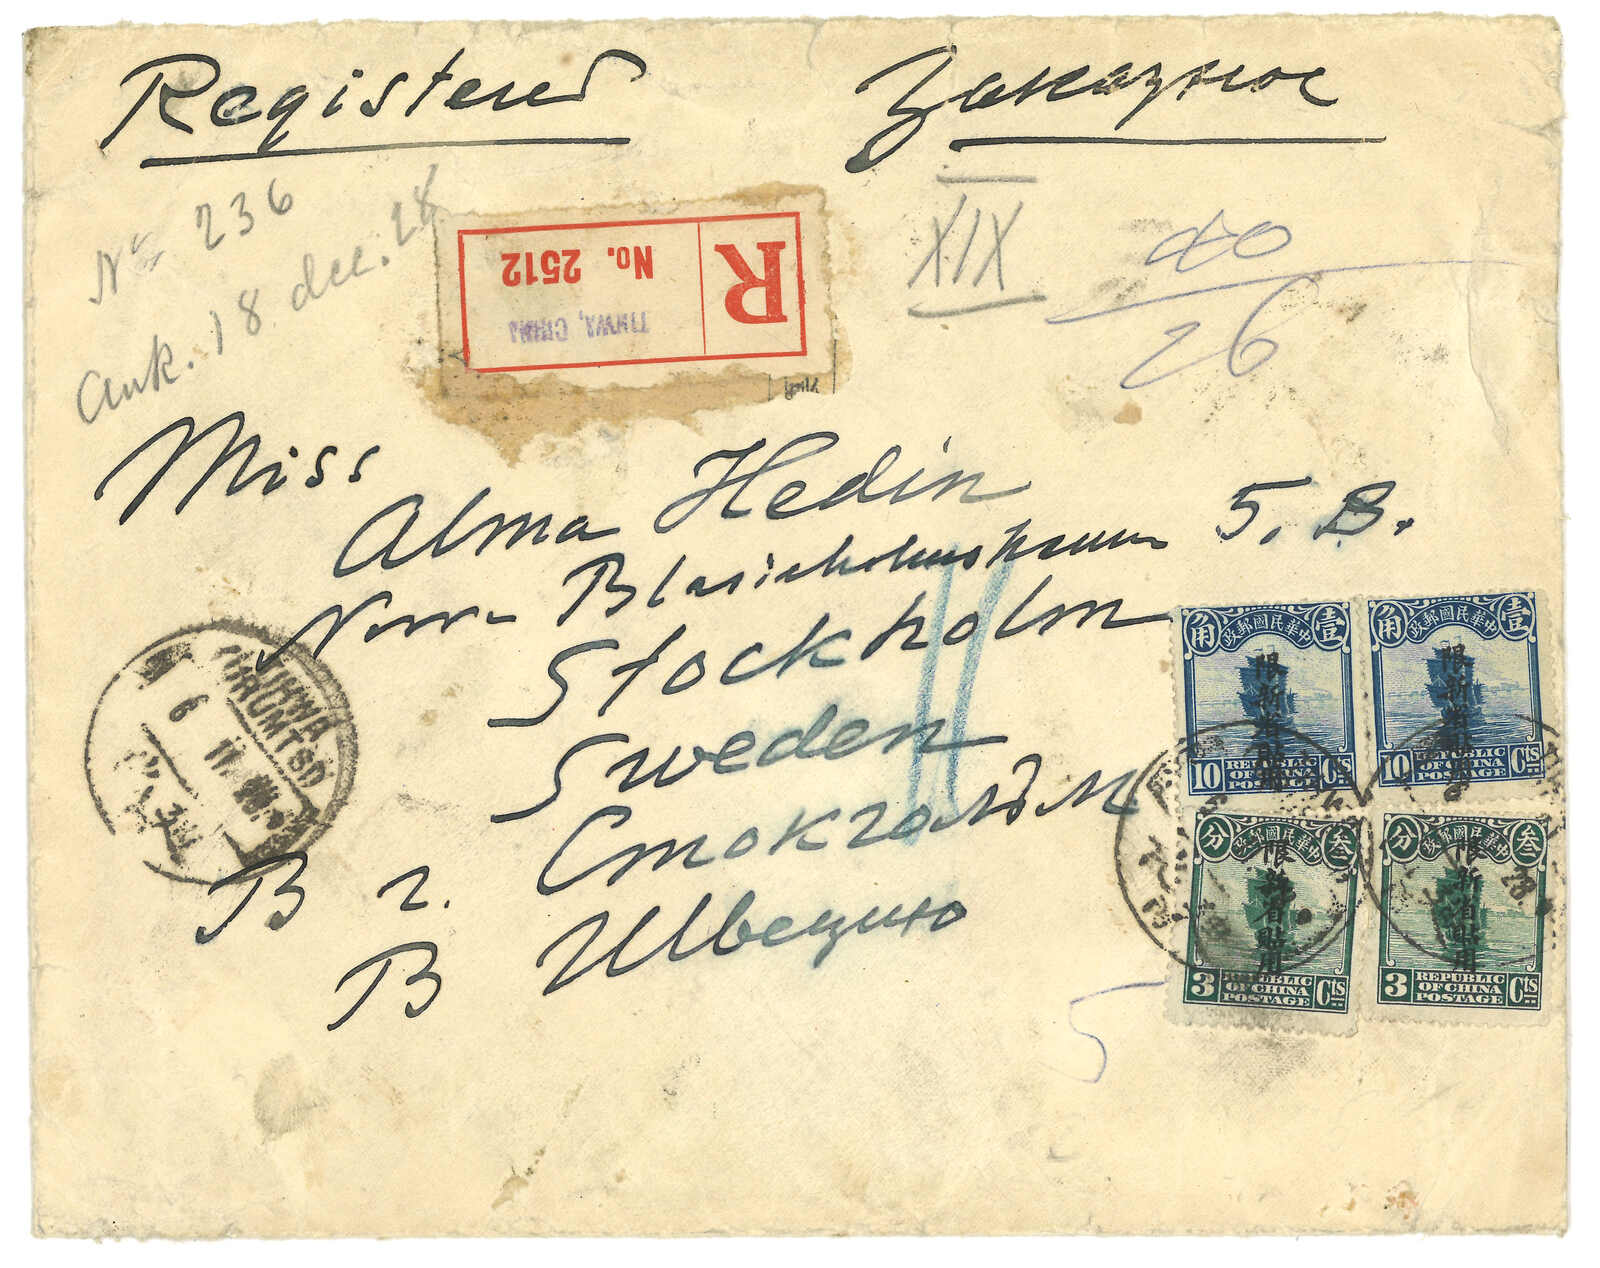 Registered
Заказное
No 236
ank. 18 dec. 28
R
No. 2512
TIHWA, CHINA
XIX
40
26
Miss
Alma Hedin
Norra Blasieholmshamnen 5. B.
Stockholm
Sweden
В г. Стокгольм
В Швецию
5
TIHWA
URUMTSI
6
11
壹 中華民國郵政 角
限新省貼用
10 REPUBLIC OF CHINA POSTAGE Cts
壹 中華民國郵政 角
限新省貼用
10 REPUBLIC OF CHINA POSTAGE Cts
叁 中華民國郵政 分
限新省貼用
3 REPUBLIC OF CHINA POSTAGE Cts
叁 中華民國郵政 分
限新省貼用
3 REPUBLIC OF CHINA POSTAGE Cts
28